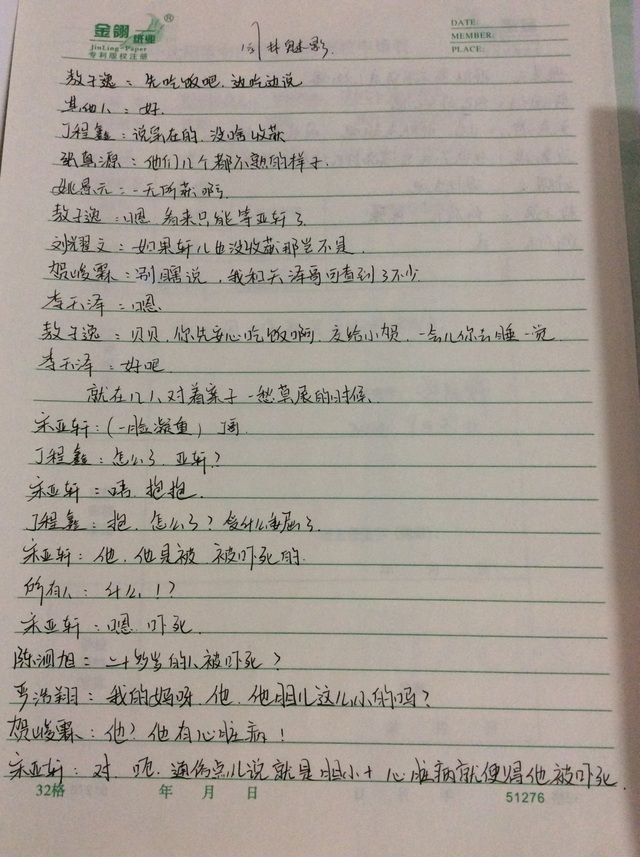 金翎纸业®
JinLing-Paper
专利版权注册
DATE:
MEMBER:
PLACE:
林魅影
敖子逸：先吃饭吧，边吃边说
其他人：好.
丁程鑫：说实在的，没啥收获
张真源：他们几个都不熟的样子.
姚景元：一无所获啊
敖子逸：嗯，看来只能等亚轩了
刘耀文：如果轩儿也没收获那岂不是.
贺峻霖：别瞎说，我和天泽哥可查到了不少.
李天泽：嗯
敖子逸：贝贝，你先安心吃饭啊，交给小贺，一会儿你去睡一觉.
李天泽：好吧
就在几人对着案子一愁莫展的时候、
宋亚轩：(一脸凝重) 丁哥
丁程鑫：怎么了，亚轩?
宋亚轩：唔，抱抱.
丁程鑫：抱，怎么了？受什么委屈了
宋亚轩：他，他是被，被吓死的.
所有人：什么！？
宋亚轩：嗯，吓死.
陈泗旭：二十多岁的人被吓死？
严浩翔：我的妈呀，他，他胆儿这么小的吗？
贺峻霖：他？他有心脏病！
宋亚轩：对，呃，通俗点儿说就是胆小+心脏病就使得他被吓死.
32格 年 月 日 51276